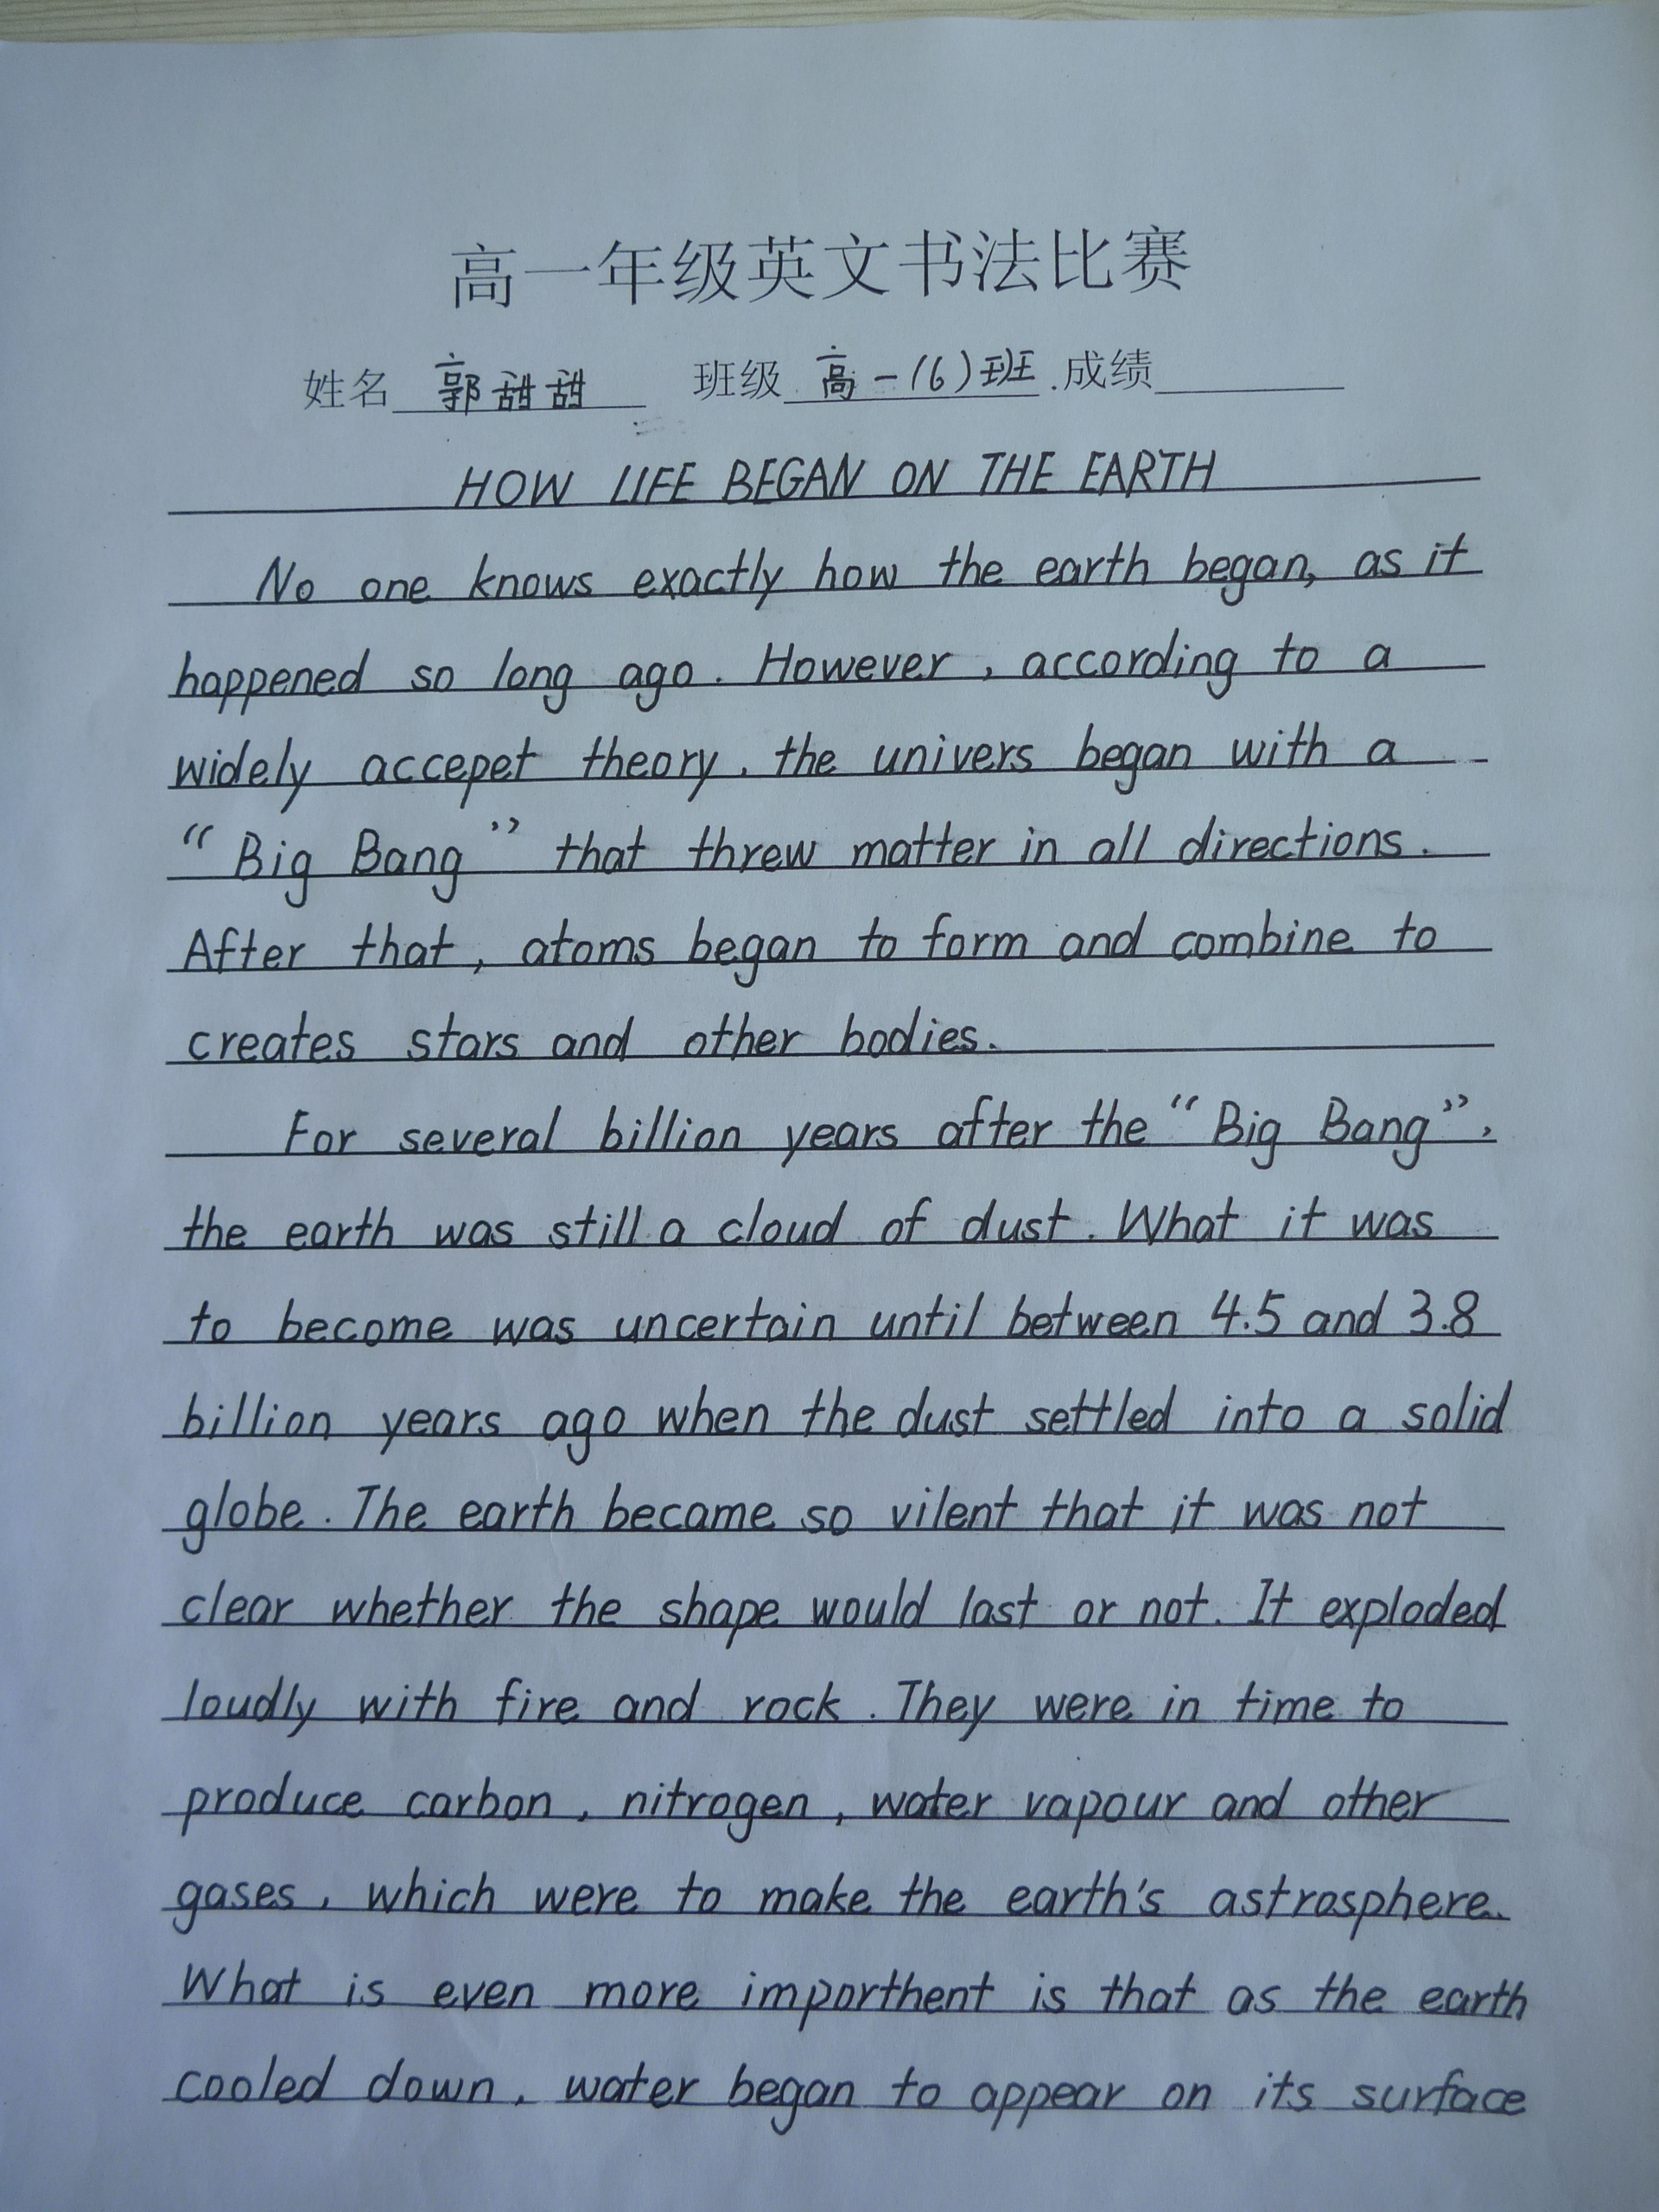 高一年级英文书法比赛
姓名 郭甜甜 班级 高一(6)班.成绩
HOW LIFE BEGAN ON THE EARTH
No one knows exactly how the earth began, as it
happened so long ago. However, according to a
widely accepet theory, the univers began with a
“Big Bang” that threw matter in all directions.
After that, atoms began to form and combine to
creates stars and other bodies.
For several billion years after the “Big Bang”,
the earth was still a cloud of dust. What it was
to become was uncertain until between 4.5 and 3.8
billion years ago when the dust settled into a solid
globe. The earth became so vilent that it was not
clear whether the shape would last or not. It exploded
loudly with fire and rock. They were in time to
produce carbon, nitrogen, water vapour and other
gases, which were to make the earth's astrosphere.
What is even more importhent is that as the earth
cooled down, water began to appear on its surface